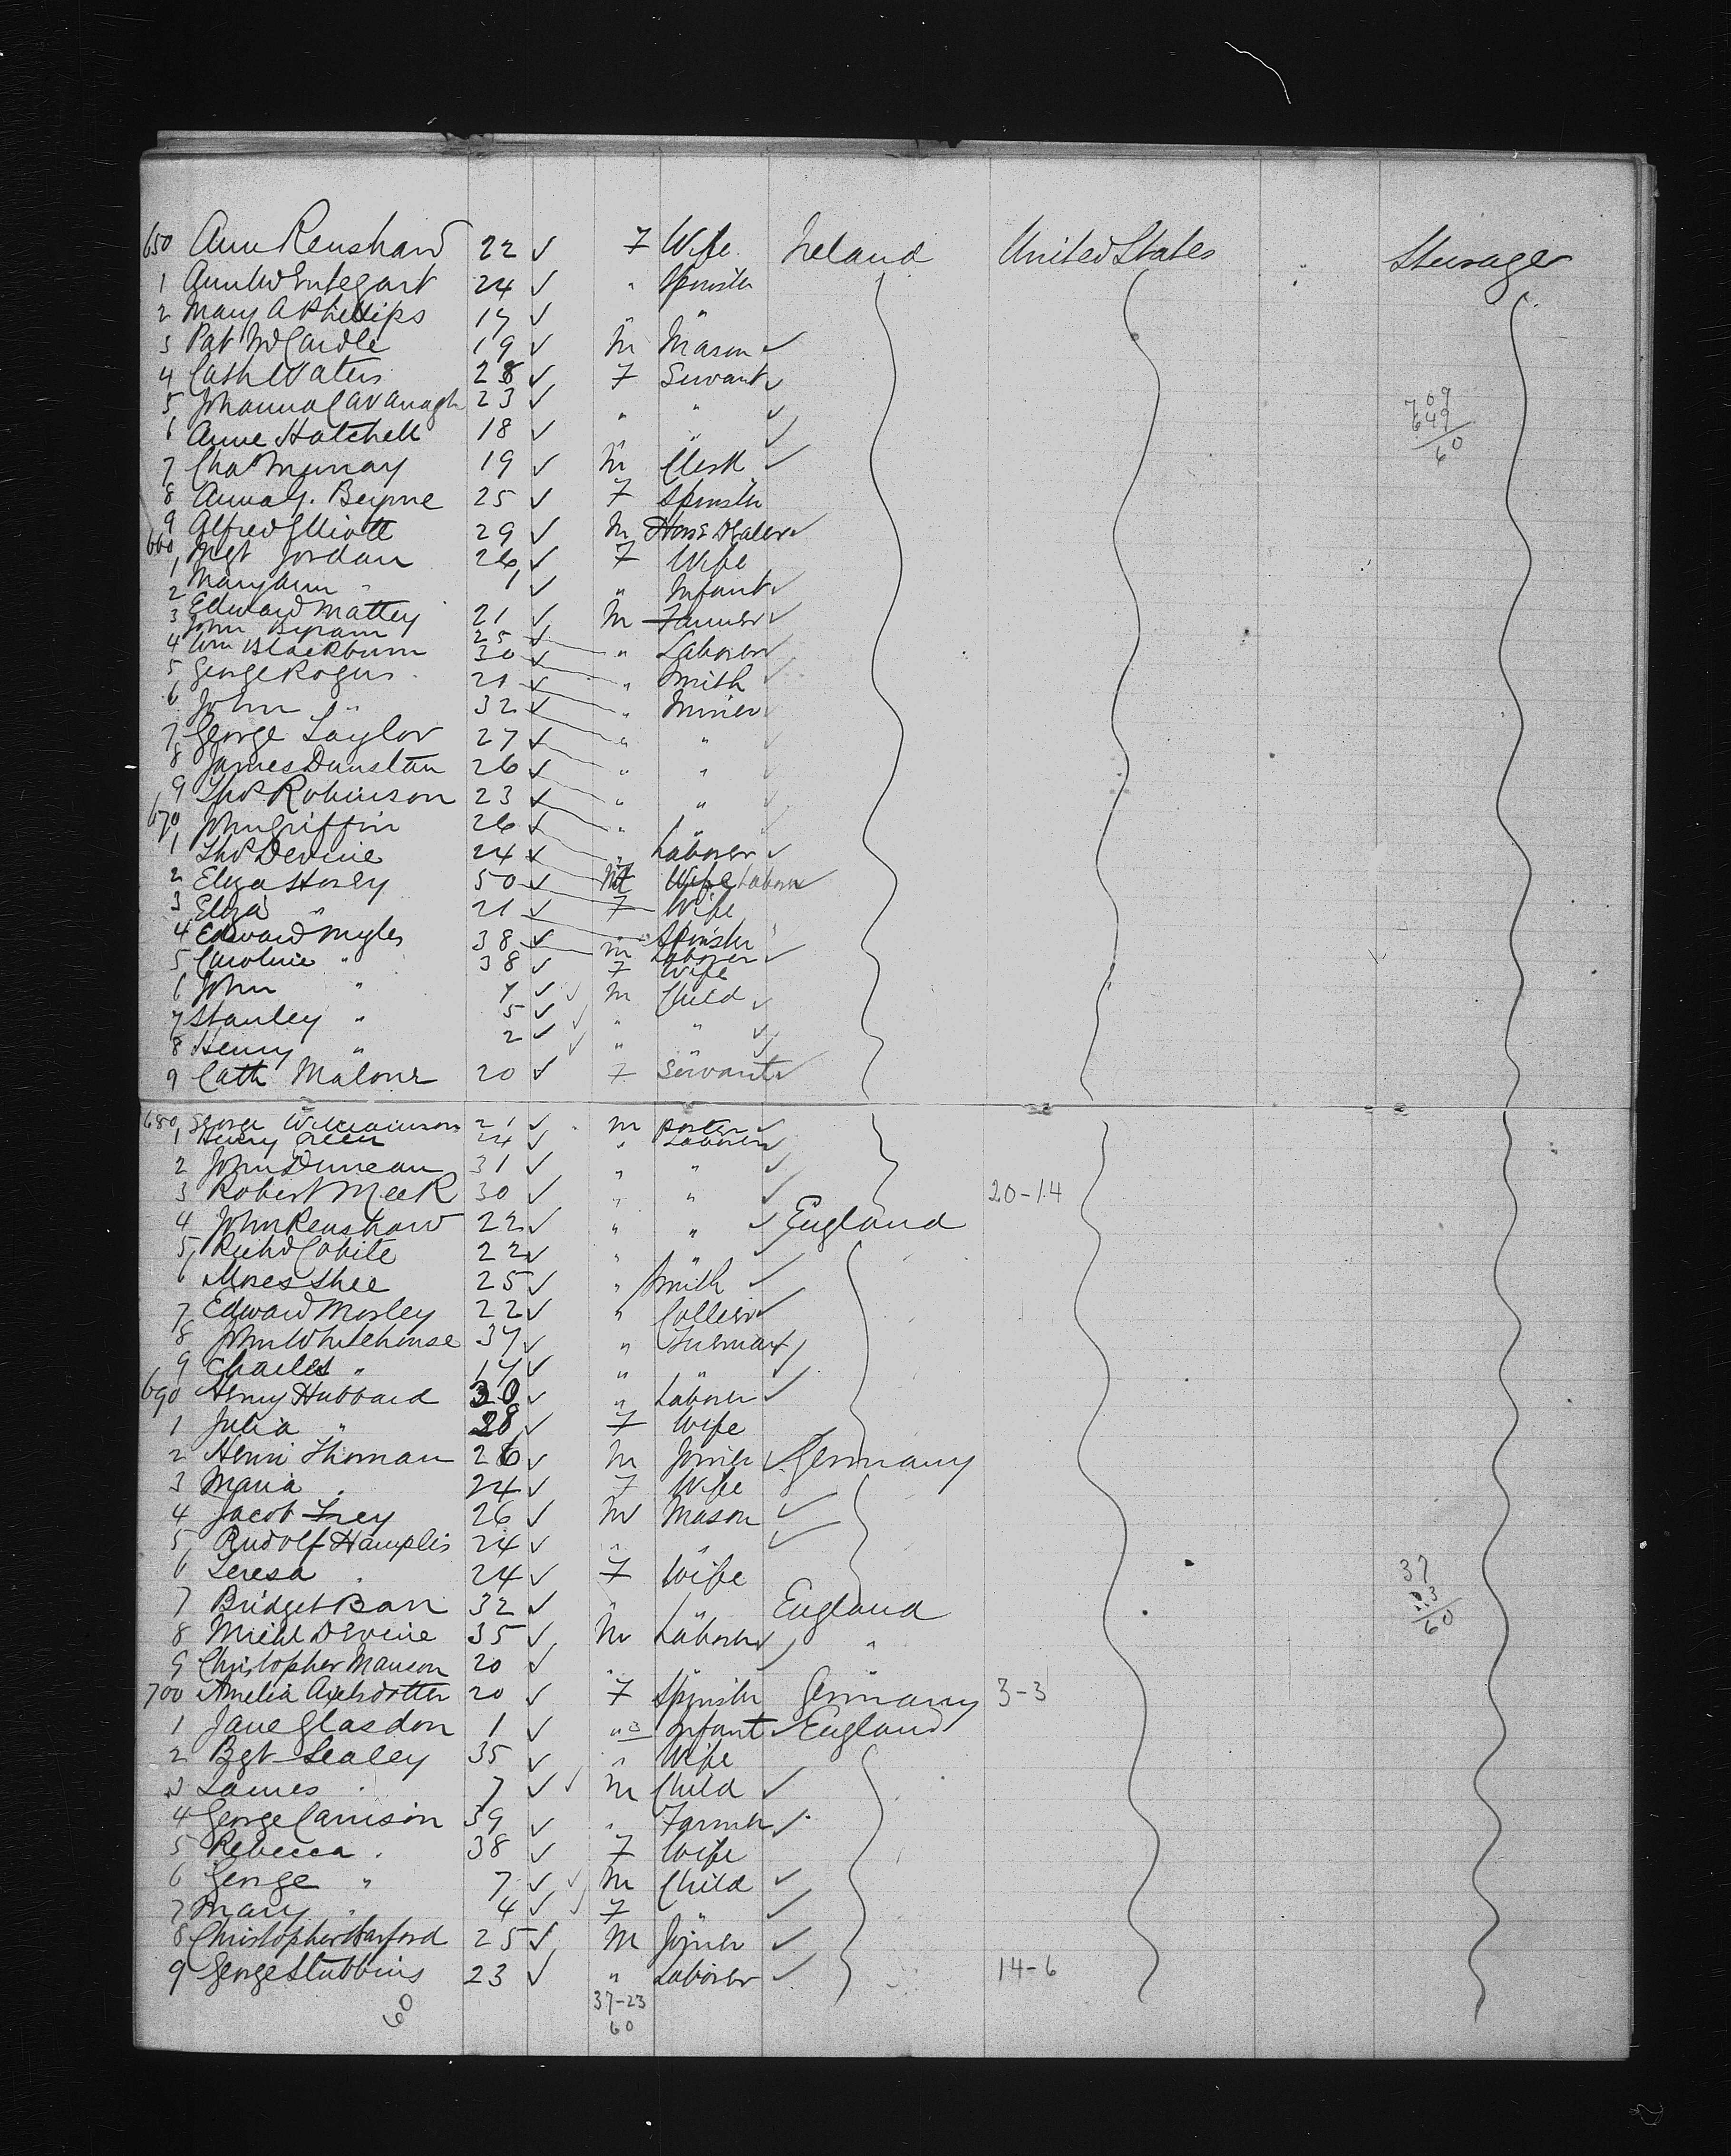 650 Ann Renshaw 22 ✓ F Wife Ireland United States Steerage
1 24 ✓ " Spinster
2 Mary A Phillips 17 ✓ " "
3 Pat McCardle 19 ✓ M Mason ✓
4 Cath Waters 28 ✓ F Servant ✓
5 Johanna Cavanagh 23 ✓ " " ✓
6 Anne Hatchell 18 ✓ " " ✓
7 Chas Murray 19 ✓ M Clerk ✓
8 Anna G. Beyrne 25 ✓ F Spinster
9 Alfred Elliott 29 ✓ M Horse Dealer ✓
660 Mgt Jordan 26 ✓ F Wife
1 Mary Ann " 1 ✓ " Infant ✓
2 Edward Mattey 21 ✓ M Farmer ✓
3 John Byram 25 ✓
4 Wm Blackburn 30 ✓ " Laborer ✓
5 George Rogers 21 ✓ " Smith ✓
6 John " 32 ✓ " Miner ✓
7 George Taylor 27 ✓ " " ✓
8 James Dunstan 26 ✓ " " ✓
9 Thos Robinson 23 ✓ " " ✓
670 John Griffin 26 ✓ " " ✓
1 Thos Devine 24 ✓ " Laborer ✓
2 Eliza Horey 50 ✓ M Wife Laborer ✓
3 Eliza " 21 ✓ F Wife
4 Edward Myles 38 ✓ " Spinster
5 Caroline " 38 ✓ M Laborer ✓
F Wife
6 John " 7 ✓ ✓ M Child ✓
7 Stanley " 5 ✓ ✓ " " ✓
8 Henry " 2 ✓ ✓ " " ✓
9 Cath Malone 20 ✓ F Servant ✓
680 George Williamson 21 ✓ M Porter ✓
1 Henry Green 24 ✓ " Laborer ✓
2 John Duncan 31 ✓ " " ✓
3 Robert Meek 30 ✓ " " ✓ 20-14
4 John Renshaw 22 ✓ " " ✓ England
5 Richd Cohite 22 ✓ " " ✓
6 Moses Shee 25 ✓ " Smith ✓
7 Edward Morley 22 ✓ " Collier ✓
8 John Whitehouse 37 ✓ " Fireman ✓
9 Charles " 17 ✓ " " ✓
690 Henry Hubbard 30 ✓ " Laborer ✓
1 Julia " 28 ✓ F Wife
2 Henri Thoman 26 ✓ M Joiner ✓ Germany
3 Maria " 24 ✓ F Wife
4 Jacob Frey 26 ✓ M Mason ✓
5 Rudolf Hamplis 24 ✓ " " ✓
6 Teresa " 24 ✓ F Wife
7 Bridget Barr 32 ✓ " " England
8 Michl Devine 35 ✓ M Laborer ✓ "
9 Christopher Manson 20 ✓ " " ✓ "
700 Amelia Axelsdotter 20 ✓ F Spinster Germany 3-3
1 Jane Glasdon 1 ✓ " Infant ✓ England
2 Bgt Sealey 35 ✓ " Wife
3 James " 7 ✓ ✓ M Child ✓
4 George Carrison 39 ✓ " Farmer ✓
5 Rebecca " 38 ✓ F Wife
6 George " 7 ✓ ✓ M Child ✓
7 Mary " 4 ✓ ✓ F " ✓
8 Christopher Harford 25 ✓ M Joiner ✓
9 George Stubbins 23 ✓ " Laborer ✓ 14-6
60
37-23
60
709
649
60
37
23
60